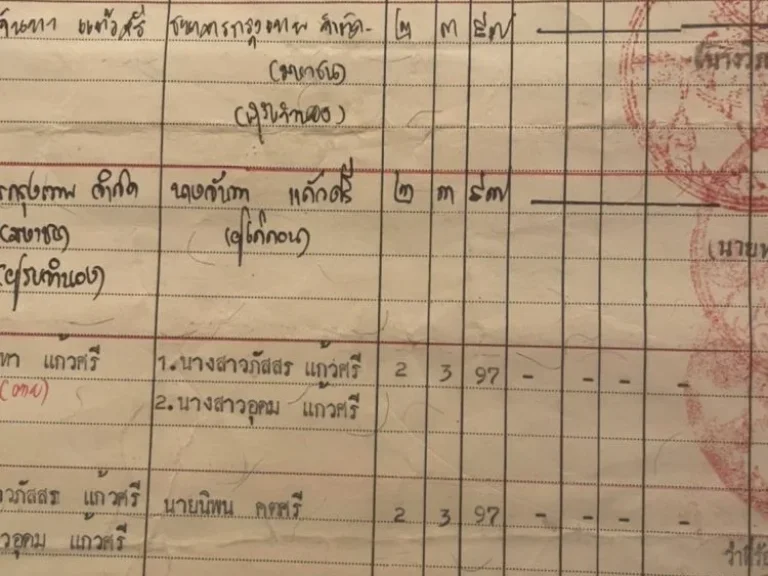 จันทา แก้วศรี ธนาคารกรุงเทพ จำกัด ๒ ๓ ๙๗
(มหาชน)
(ผู้รับจำนอง)
รกรุงเทพ จำกัด นางจันทา แก้วศรี ๒ ๓ ๙๗
(มหาชน) (ผู้ไถ่ถอน)
(ผู้รับจำนอง)
(นายพ
ทา แก้วศรี 1.นางสาวภัสสร แก้วศรี 2 3 97 - - - -
(ตาย) 2.นางสาวอุดม แก้วศรี
วภัสสร แก้วศรี นายนิพน คตศรี 2 3 97 - - - -
วอุดม แก้วศรี